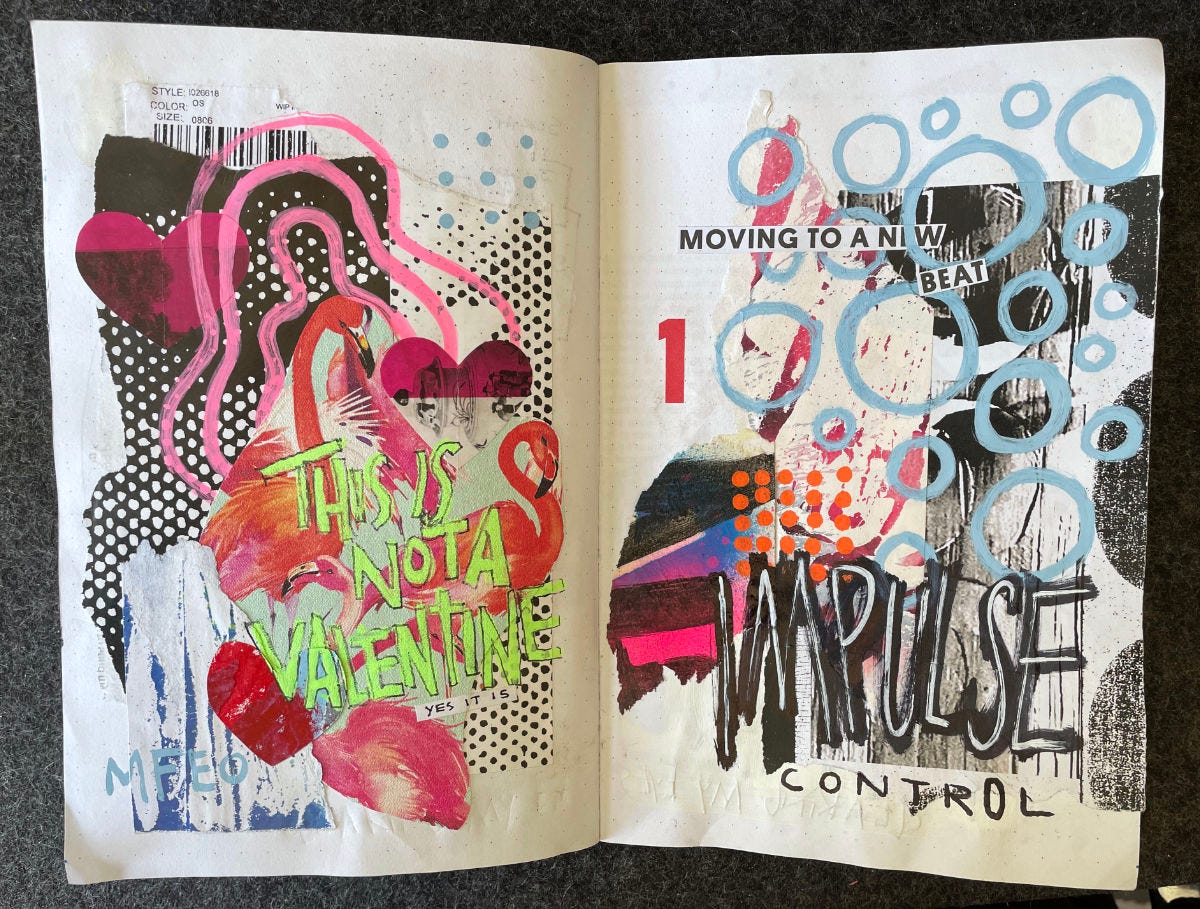 STYLE: I026618
COLOR: OS
WIP
SIZE: 0806
THIS IS
NOT A
VALENTINE
YES IT IS.
MFEO
MOVING TO A NEW
BEAT
1
IMPULSE
CONTROL